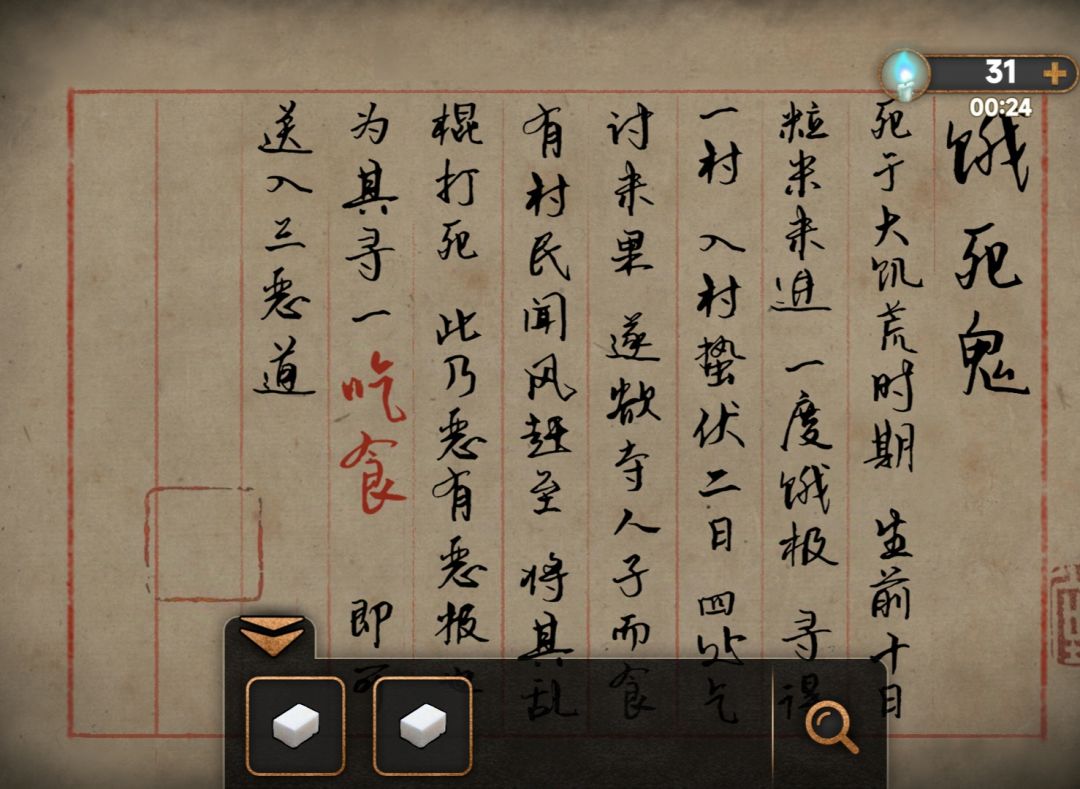 31
00:24
饿死鬼
死于大饥荒时期 生前十日
粒米未进 一度饿极 寻得
一村 入村蛰伏二日 四处乞
讨未果 遂欲夺人子而食
有村民闻风赶至 将其乱
棍打死 此乃恶有恶报也
为其寻一吃食 即可
送入三恶道